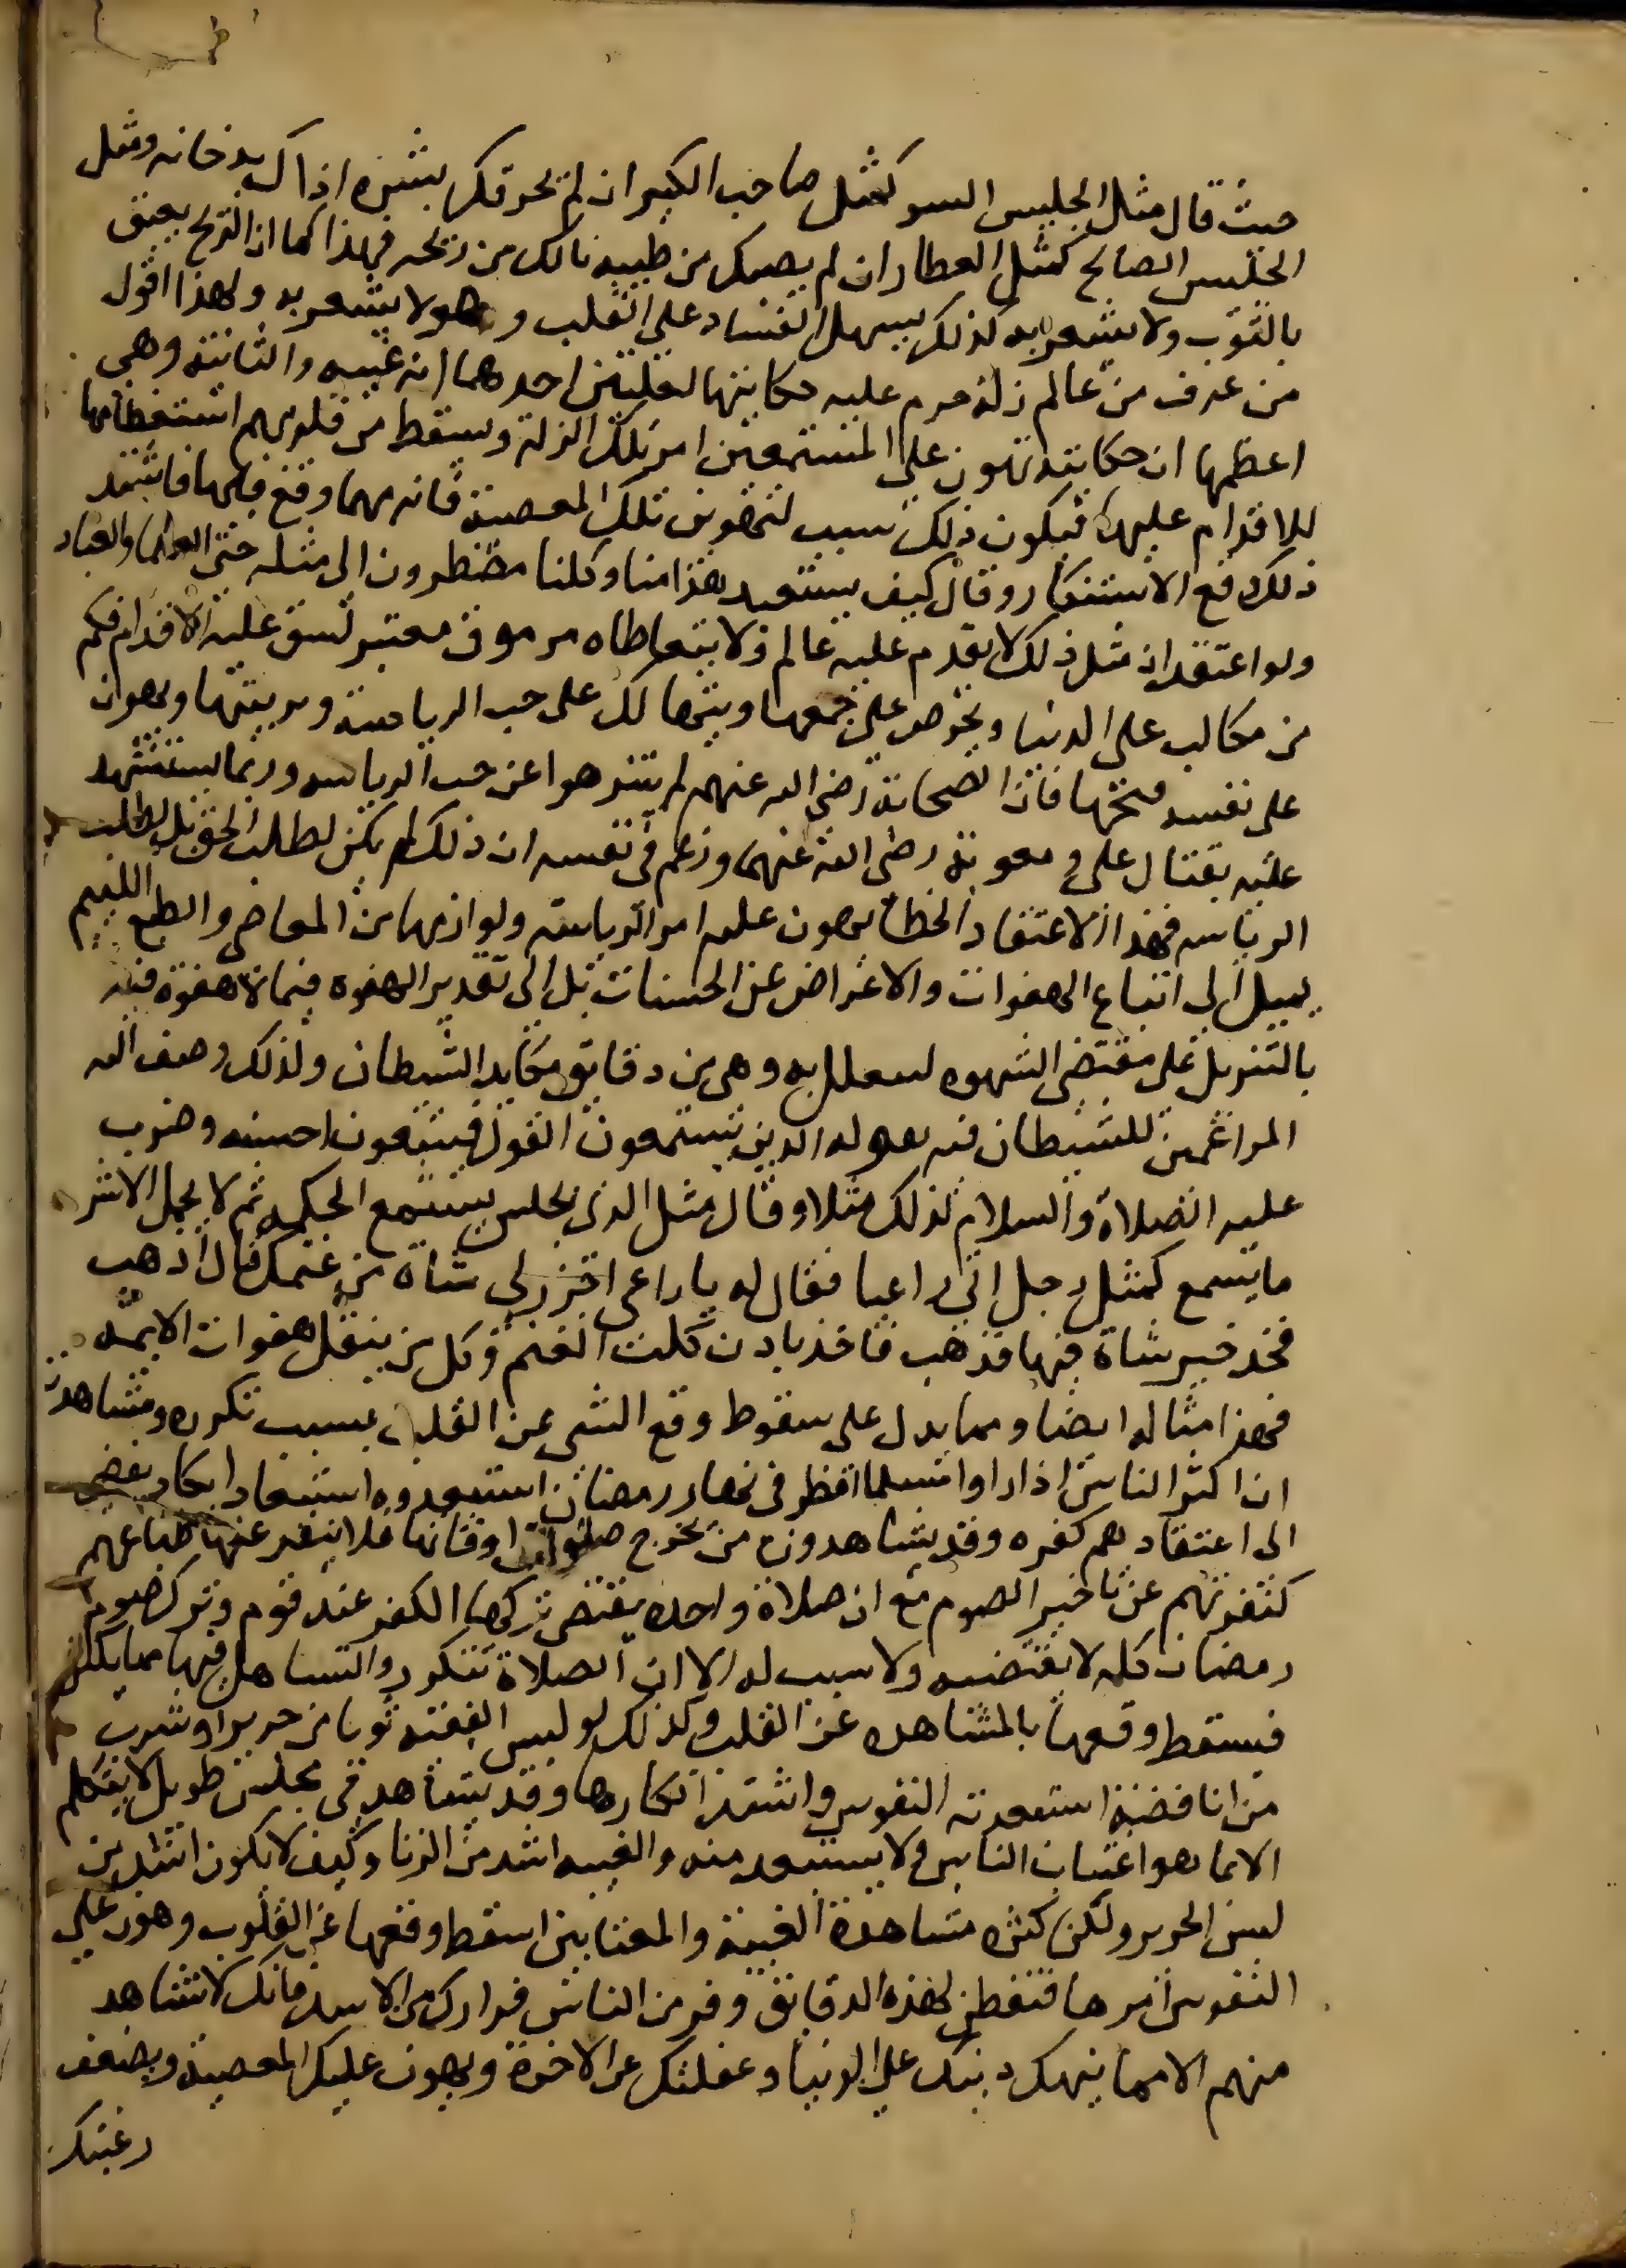 حيث قال مثل الجليس السو كمثل صاحب الكير ان لم يحرقك بشرره اذاك بدخانه ومثل
الجليس الصالح كمثل العطار ان لم يصبك من طيبه نالك من ريحه فهذا كما ان الريح يعبق
بالثوب ولا يشعر به كذلك يسهل الفساد على القلب وهو لا يشعر به ولهذا اقول
من عرف من عالم زلة حرم عليه حكايتها لعلتين احدهما انه غيبه والثانية وهي
اعظمها ان حكايته تهون على المستمعين امر تلك الزلة ويسقط من قلوبهم استعظامها
للاقدام عليها فيكون ذلك سبب لتهوين تلك المعصية فانه مهما وقع فيها فاستنكر
ذلك دفع الاستنكار وقال كيف يستبعد هذا منا وكلنا مضطرون الى مثله حتى العلما والعباد
ولو اعتقد ان مثل ذلك لا يقدم عليه عالم ولا يتعاطاه مرموق معتبر لشق عليه الاقدام فكم
من مكالب على الدنيا ويحرص على جمعها ويتهالك على حب الرياسة وتزيينها ويهون
على نفسه قبحها فان الصحابة رضي الله عنهم لم يتنزهوا عن حب الرياسه وربما يستشهد
عليه بقتال علي ومعوية رضي الله عنهما وزعم في نفسه ان ذلك لم يكن لطلب الحق بل لطلب
الرياسه فهذا الاعتقاد الخطا يهون عليه امر الرياسة ولوازمها من المعاصي والطبع اللئيم
يميل الى اتباع الهفوات والاعراض عن الحسنات بل الى تقدير الهفوه فيما لا هفوة فيه
بالتنزيل على مقتضى الشهوه ليتعلل به وهي من دقايق مكايد الشيطان ولذلك وصف الله
المراغمين للشيطان فيه بقوله الذين يستمعون القول فيتبعون احسنه وضرب
عليه الصلاة والسلام لذلك مثلا وقال مثل الذي يجلس يستمع الحكمة ثم لا يحمل الا شر
ما يسمع كمثل رجل اتى راعيا فقال له يا راعي اجزر لي شاة من غنمك قال اذهب
فخذ خير شاة فيها فذهب فاخذ باذن كلب الغنم وكل من ينقل هفوات الايمة
فهذا مثاله ايضا ومما يدل على سقوط وقع الشي عن القلب بسبب تكرره ومشاهدته
ان اكثر الناس اذا راوا مسلما افطر في نهار رمضان استبعدوه استبعادا يكاد يفضي
الى اعتقادهم كفره وقد يشاهدون من يخرج صلوات اوقاتها فلا ينفر عنها طباعهم
كنفرتهم عن تاخير الصوم مع ان صلاة واحده يقتضي تركها الكفر عند قوم وترك صوم
رمضان كله لا يقتضيه ولا سبب له الا ان الصلاة تتكرر والتساهل فيها مما يكثر
فيسقط وقعها بالمشاهده عن القلب وكذلك لو لبس الفقيه ثوبا من حرير او شرب
من انا فضة استبعدته النفوس واشتد انكارها وقد يشاهد في مجلس طويل لا يتكلم
الا بما هو اغتياب الناس ولا يستبعد منه والغيبه اشد من الزنا وكيف لا يكون اشد من
لبس الحرير ولكن كثره مشاهدة الغيبة والمغتابين اسقط وقعها عن القلوب وهون على
النفوس امرها فتفطن لهذه الدقايق وفر من الناس فرارك من الاسد فانك لا تشاهد
منهم الا ما ينهك دينك على الدنيا وغفلتك عن الاخرة ويهون عليك المعصية ويضعف
رغبتك